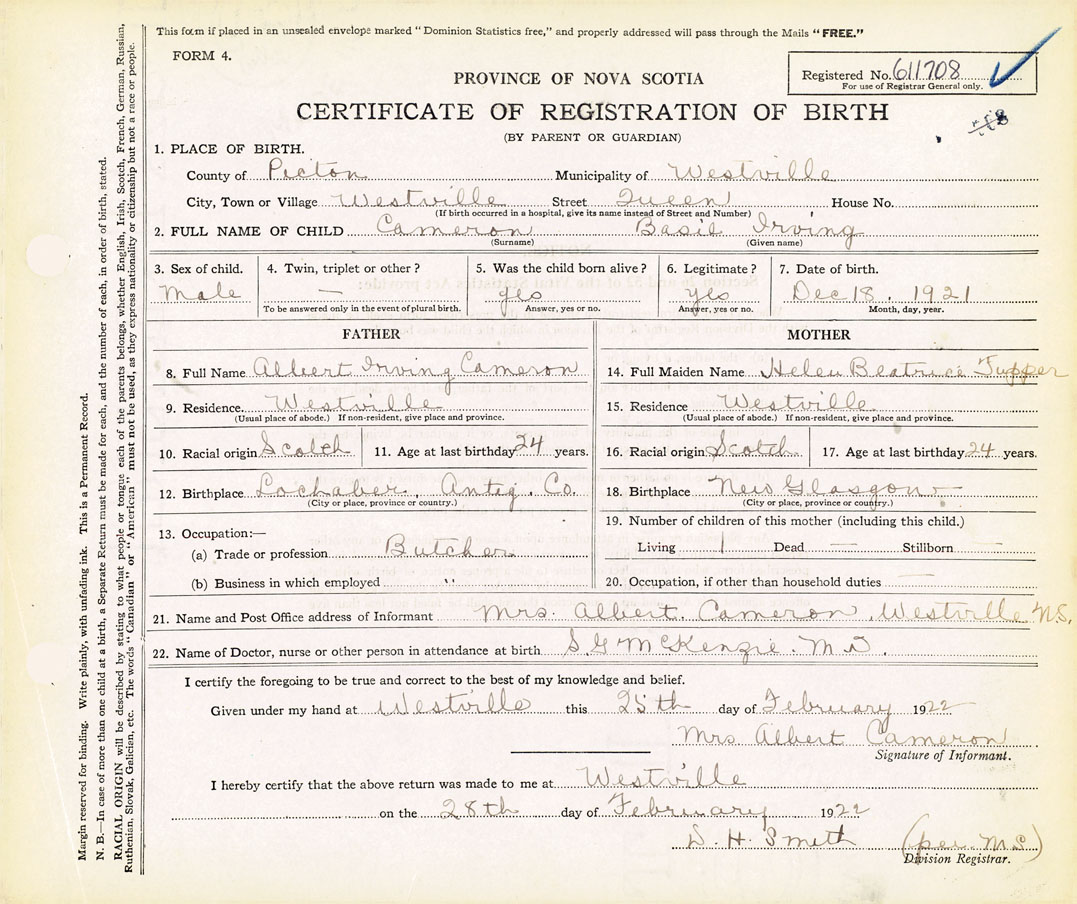 This form if placed in an unsealed envelope marked "Dominion Statistics free," and properly addressed will pass through the Mails "FREE."
FORM 4.
Registered No. 611708
For use of Registrar General only.
PROVINCE OF NOVA SCOTIA
CERTIFICATE OF REGISTRATION OF BIRTH
(BY PARENT OR GUARDIAN)
1. PLACE OF BIRTH.
County of Pictou Municipality of Westville
City, Town or Village Westville Street Queen House No.
(If birth occurred in a hospital, give its name instead of Street and Number)
2. FULL NAME OF CHILD Cameron Basil Irving
(Surname) (Given name)
3. Sex of child. 4. Twin, triplet or other? 5. Was the child born alive? 6. Legitimate? 7. Date of birth.
Male — yes yes Dec 18. 1921
To be answered only in the event of plural birth. Answer, yes or no. Answer, yes or no. Month, day, year.
FATHER
8. Full Name Albert Irving Cameron
9. Residence. Westville
(Usual place of abode.) If non-resident, give place and province.
10. Racial origin Scotch 11. Age at last birthday 24 years.
12. Birthplace Lochaber, Antig. Co.
(City or place, province or country.)
13. Occupation:—
(a) Trade or profession Butcher
(b) Business in which employed "
MOTHER
14. Full Maiden Name Helen Beatrice Tupper
15. Residence Westville
(Usual place of abode.) If non-resident, give place and province.
16. Racial origin Scotch 17. Age at last birthday 24 years.
18. Birthplace New Glasgow —
(City or place, province or country.)
19. Number of children of this mother (including this child.)
Living 1 Dead — Stillborn —
20. Occupation, if other than household duties —
21. Name and Post Office address of Informant Mrs. Albert. Cameron, Westville N.S.
22. Name of Doctor, nurse or other person in attendance at birth S G McKenzie. M D.
I certify the foregoing to be true and correct to the best of my knowledge and belief.
Given under my hand at Westville this 25th day of February 1922
Mrs Albert Cameron
Signature of Informant.
I hereby certify that the above return was made to me at Westville
on the 28th day of February 1922
D. H. Smith (per M S)
Division Registrar.
Margin reserved for binding. Write plainly, with unfading ink. This is a Permanent Record.
N. B.—In case of more than one child at a birth, a Separate Return must be made for each, and the number of each, in order of birth, stated.
RACIAL ORIGIN will be described by stating to what people or tongue each of the parents belongs, whether English, Irish, Scotch, French, German, Russian,
Ruthenian, Slovak, Galician, etc. The words "Canadian" or "American" must not be used, as they express nationality or citizenship but not a race or people.